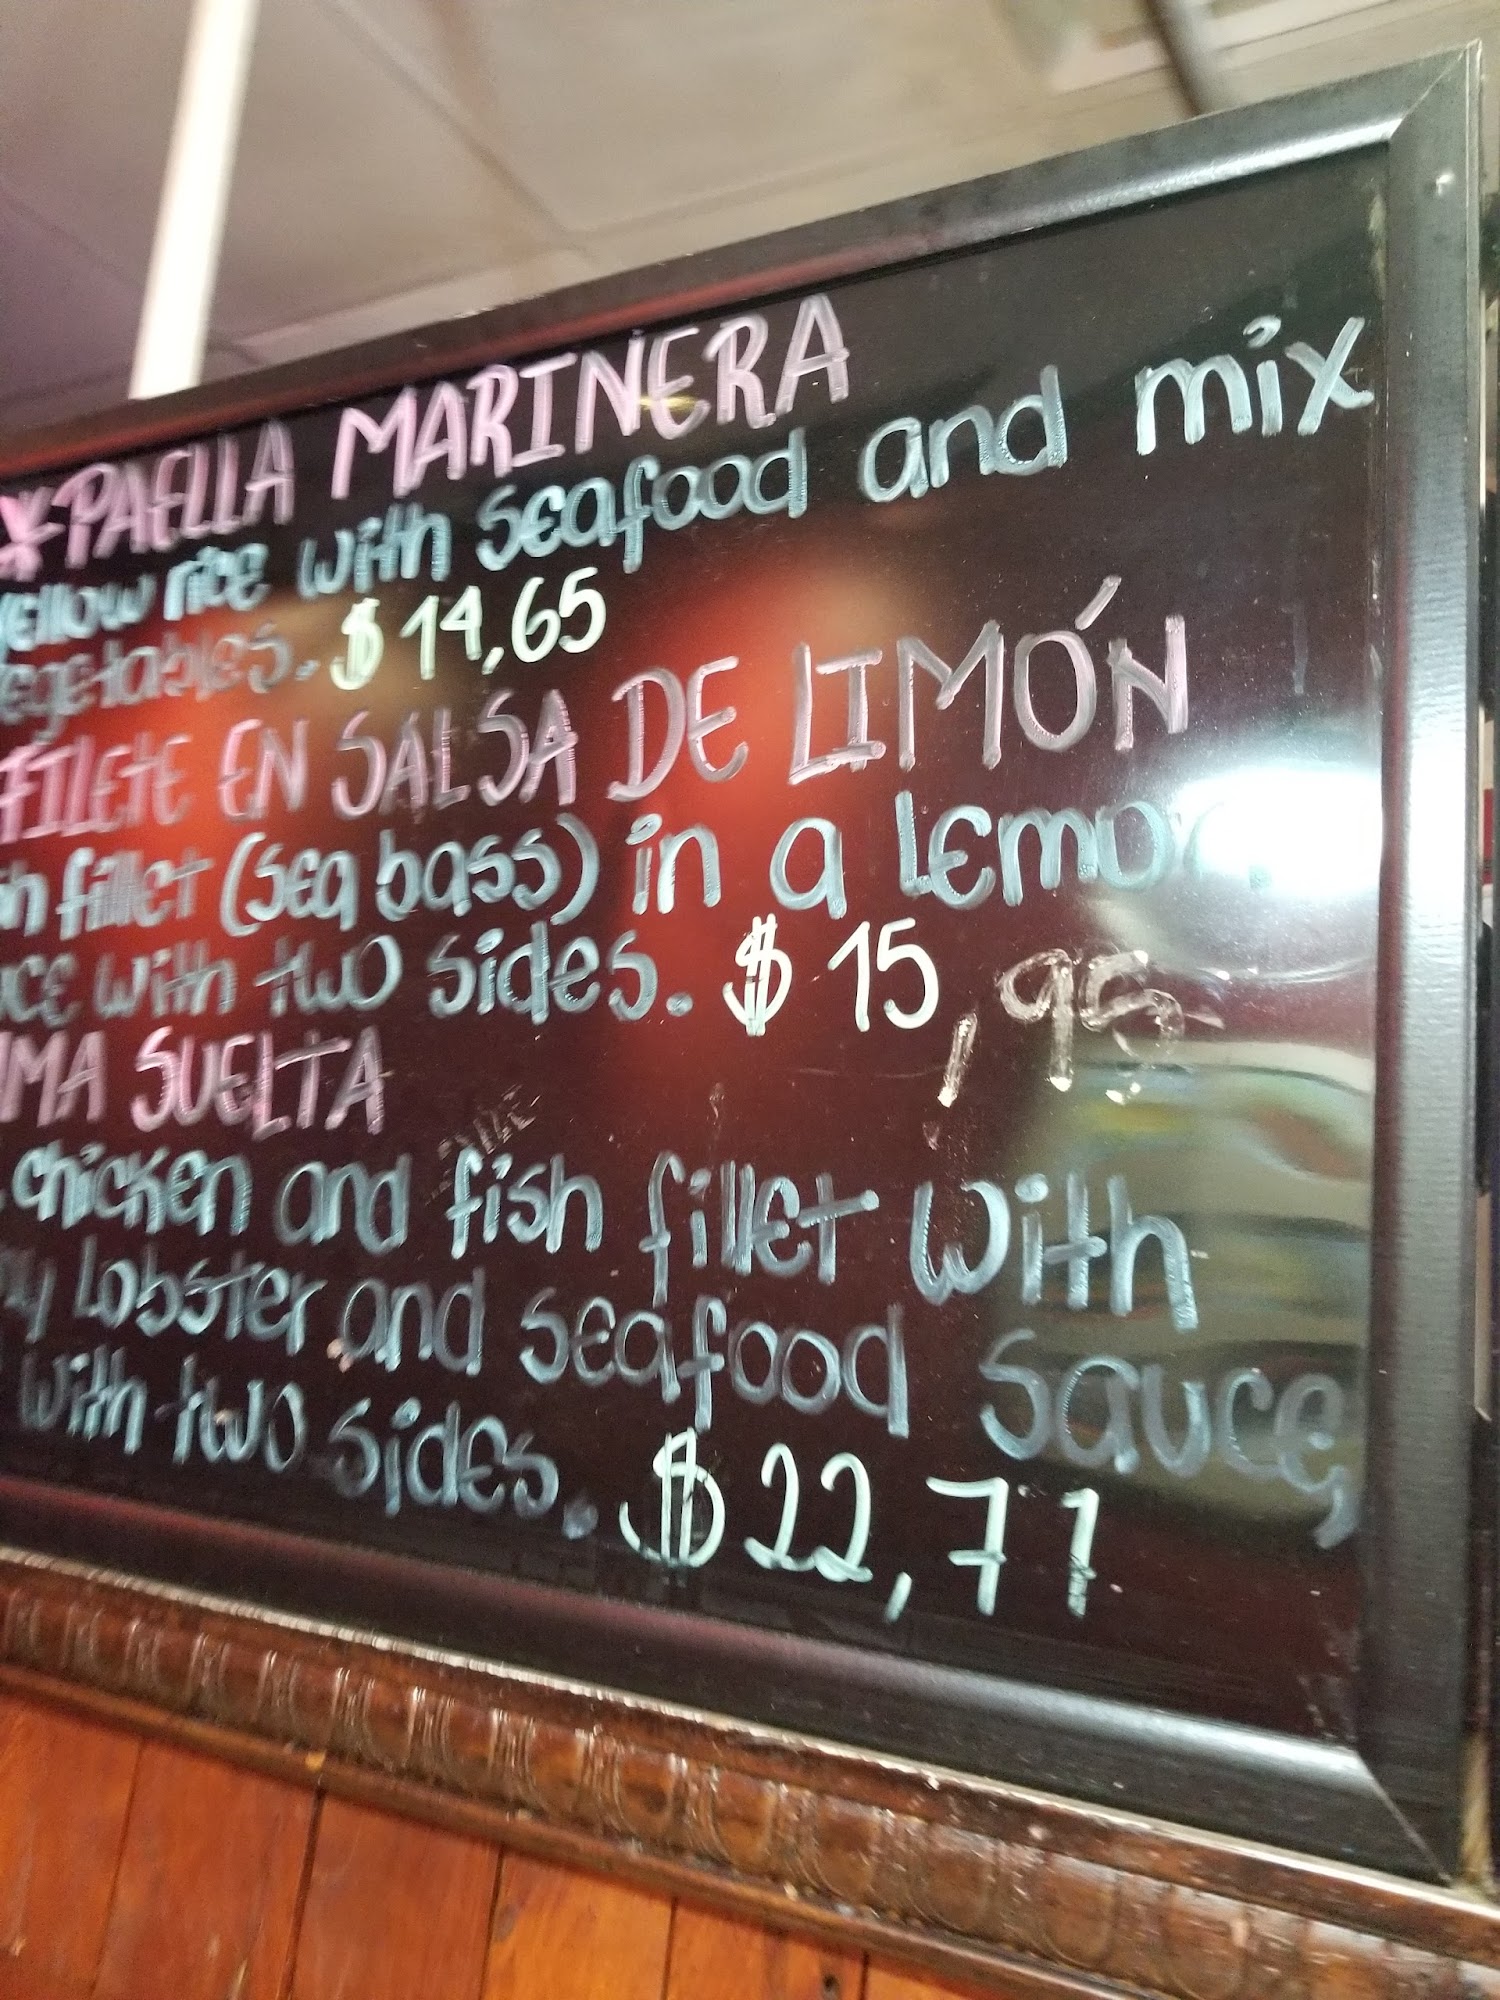 *PAELLA MARINERA
Yellow rice with seafood and mix
vegetables. $14,65
FILETE EN SALSA DE LIMÓN
fillet (sea bass) in a Lemon
with two sides. $15,95
SUELTA
chicken and fish fillet with
lobster and seafood sauce,
with two sides. $22,71